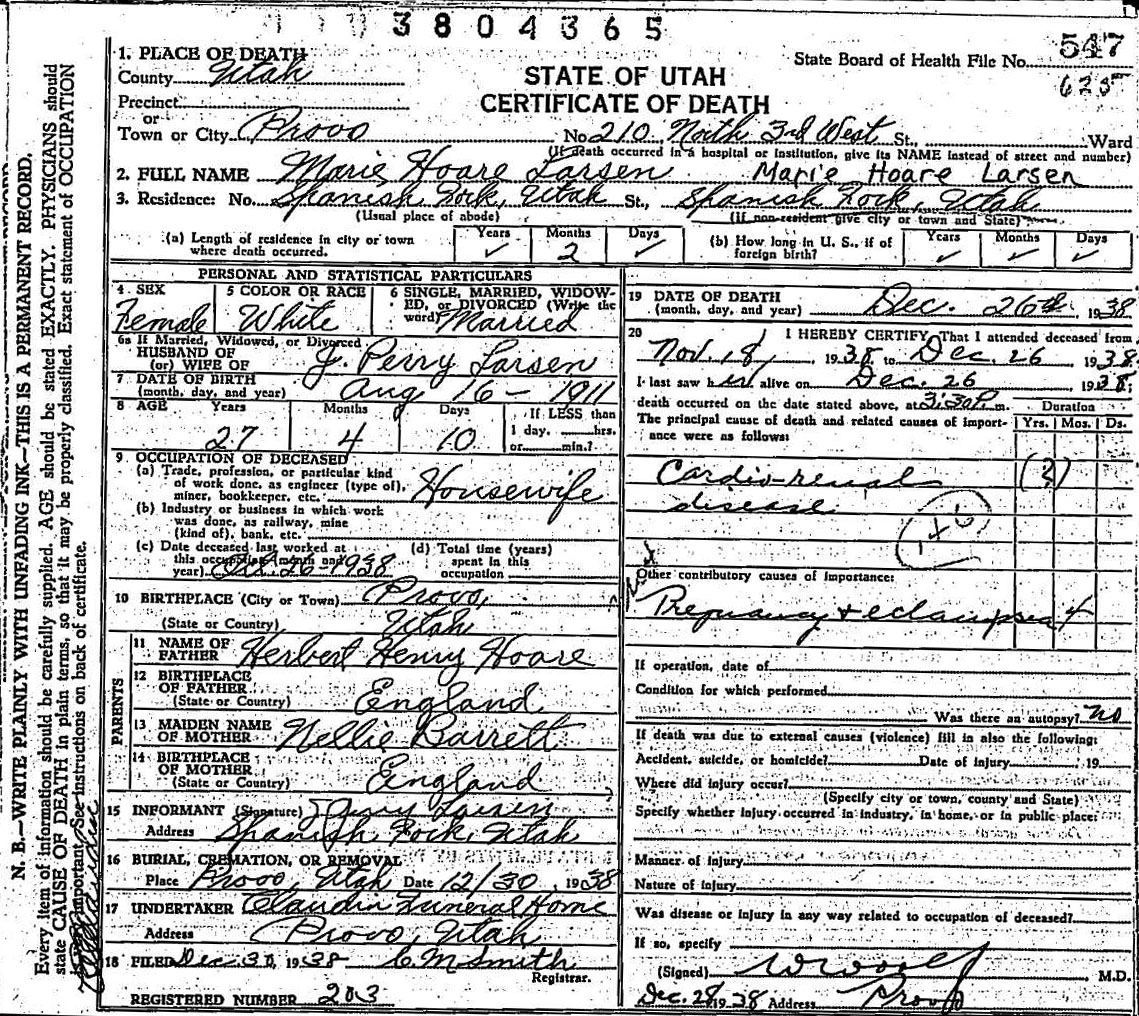 3804365
1. PLACE OF DEATH
County Utah
Precinct
or
Town or City Provo No. 210 North 3rd West St., Ward
(If death occurred in a hospital or institution, give its NAME instead of street and number)
STATE OF UTAH
CERTIFICATE OF DEATH
State Board of Health File No. 547
625
2. FULL NAME Marie Hoare Larsen Marie Hoare Larsen
3. Residence: No. Spanish Fork, Utah St., Spanish Fork, Utah
(Usual place of abode) (If non-resident give city or town and State)
(a) Length of residence in city or town where death occurred. Years ✓ Months 2 Days ✓
(b) How long in U. S., if of foreign birth? Years ✓ Months ✓ Days ✓
PERSONAL AND STATISTICAL PARTICULARS
4. SEX Female
5 COLOR OR RACE White
6 SINGLE, MARRIED, WIDOWED, or DIVORCED (Write the word) Married
6a If Married, Widowed, or Divorced
HUSBAND OF
(or) WIFE OF J. Perry Larsen
7 DATE OF BIRTH
(month, day, and year) Aug 16 - 1911
8 AGE Years 27 Months 4 Days 10 If LESS than 1 day, hrs. or min.?
9 OCCUPATION OF DECEASED
(a) Trade, profession, or particular kind
of work done, as engineer (type of),
miner, bookkeeper, etc. Housewife
(b) Industry or business in which work
was done, as railway, mine
(kind of), bank, etc.
(c) Date deceased last worked at
this occupation (month and
year) Oct. 26-1938
(d) Total time (years)
spent in this
occupation
10 BIRTHPLACE (City or Town) Provo,
(State or Country) Utah
PARENTS
11 NAME OF
FATHER Herbert Henry Hoare
12 BIRTHPLACE
OF FATHER
(State or Country) England
13 MAIDEN NAME
OF MOTHER Nellie Barrett
14 BIRTHPLACE
OF MOTHER
(State or Country) England
15 INFORMANT (Signature) Larsen
Address Spanish Fork, Utah
16 BURIAL, CREMATION, OR REMOVAL
Place Provo, Utah Date 12/30, 1938
17 UNDERTAKER Claudin Funeral Home
Address Provo, Utah
18 FILED Dec 30, 1938 C. M. Smith
Registrar.
REGISTERED NUMBER 203
19 DATE OF DEATH
(month, day, and year) Dec. 26th 1938
20 I HEREBY CERTIFY, That I attended deceased from
Nov. 18, 1938 to Dec. 26 1938.
I last saw her alive on Dec. 26 1938;
death occurred on the date stated above, at 3:30 P. m.
Duration
Yrs. Mos. Ds.
The principal cause of death and related causes of importance were as follows:
Cardio-renal (?)
disease
146
Other contributory causes of importance:
Pregnancy & eclampsea 4
If operation, date of
Condition for which performed
Was there an autopsy? no
If death was due to external causes (violence) fill in also the following:
Accident, suicide, or homicide? Date of injury 19
Where did injury occur?
(Specify city or town, county and State)
Specify whether injury occurred in industry, in home, or in public place:
Manner of injury
Nature of injury
Was disease or injury in any way related to occupation of deceased?
If so, specify
(Signed) M.D.
Dec. 28 1938 Address Provo
N. B.—WRITE PLAINLY WITH UNFADING INK—THIS IS A PERMANENT RECORD.
Every item of information should be carefully supplied. AGE should be stated EXACTLY. PHYSICIANS should
state CAUSE OF DEATH in plain terms, so that it may be properly classified. Exact statement of OCCUPATION
important. See instructions on back of certificate.